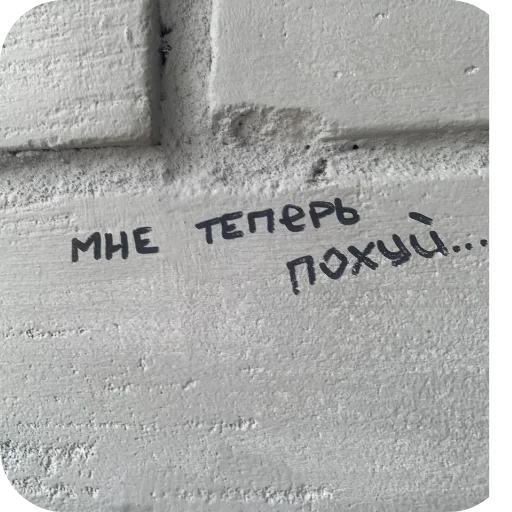 мне теперь
похуй...